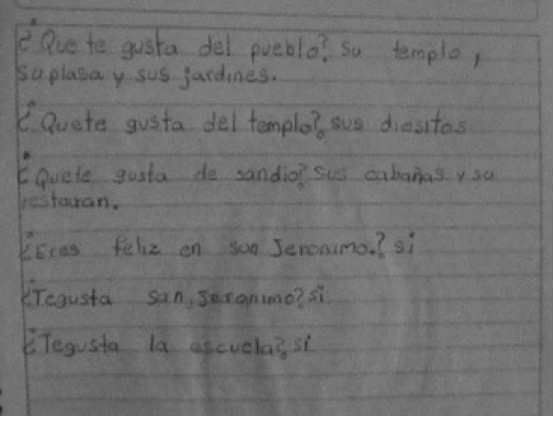 ¿Que te gusta del pueblo? su templo,
su plasa y sus jardines.
¿Quete gusta del templo? sus diositos
¿Quete gusta de sandio? sus cabañas y su
restauran.
¿Eres feliz en san Jeronimo.? si
¿Tegusta san, Jeronimo? si
¿Tegusta la escuela? si.